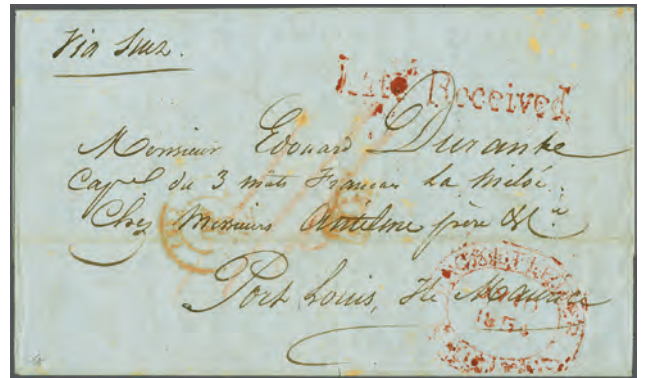 Via Suez.
Late Received
Monsieur Edouard Durante
Cap du 3 mats Français La
Chez Messieurs Antelme frère & Cie
Port Louis, Ile Maurice